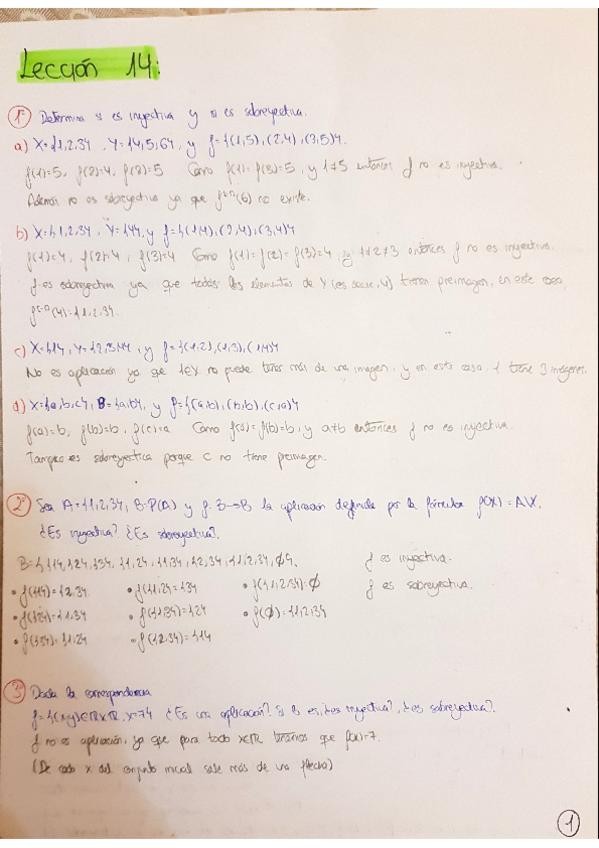 Lección 14:
1º Determina si es inyectiva y si es sobreyectiva.
a) X={1,2,3}, Y={4,5,6}, y f={(1,5),(2,4),(3,5)}.
f(1)=5, f(2)=4, f(3)=5 Como f(1)=f(3)=5, y 1≠3 entonces f no es inyectiva.
Además no es sobreyectiva ya que f⁻¹(6) no existe.
b) X={1,2,3}, Y={4}, y f={(1,4),(2,4),(3,4)}
f(1)=4, f(2)=4, f(3)=4 Como f(1)=f(2)=f(3)=4, y 1≠2≠3 entonces f no es inyectiva.
f es sobreyectiva ya que todos los elementos de Y (es decir, 4) tienen preimagen, en este caso,
f⁻¹(4)={1,2,3}.
c) X={1}, Y={2,3,4}, y f={(1,2),(1,3),(1,4)}
No es aplicación ya que 1∈X no puede tener más de una imagen, y en este caso, 1 tiene 3 imágenes.
d) X={a,b,c}, B={a,b}, y f={(a,b),(b,b),(c,a)}
f(a)=b, f(b)=b, f(c)=a Como f(a)=f(b)=b, y a≠b entonces f no es inyectiva.
Tampoco es sobreyectiva porque c no tiene preimagen.
2º Sea A={1,2,3}, B=P(A) y f: B→B la aplicación definida por la fórmula f(X)=A\X.
¿Es inyectiva? ¿Es sobreyectiva?.
B={{1},{2},{3},{1,2},{1,3},{2,3},{1,2,3},∅}. f es inyectiva.
• f({1})={2,3} • f({1,2})={3} • f({1,2,3})=∅ f es sobreyectiva.
• f({2})={1,3} • f({1,3})={2} • f(∅)={1,2,3}
• f({3})={1,2} • f({2,3})={1}
3º Dada la correspondencia
f={(x,y)∈ℝxℝ, x=7} ¿Es una aplicación? Si lo es, ¿es inyectiva?, ¿es sobreyectiva?.
f no es aplicación, ya que para todo x∈ℝ tenemos que f(x)=7.
(De cada x del conjunto inicial sale más de una flecha)
1